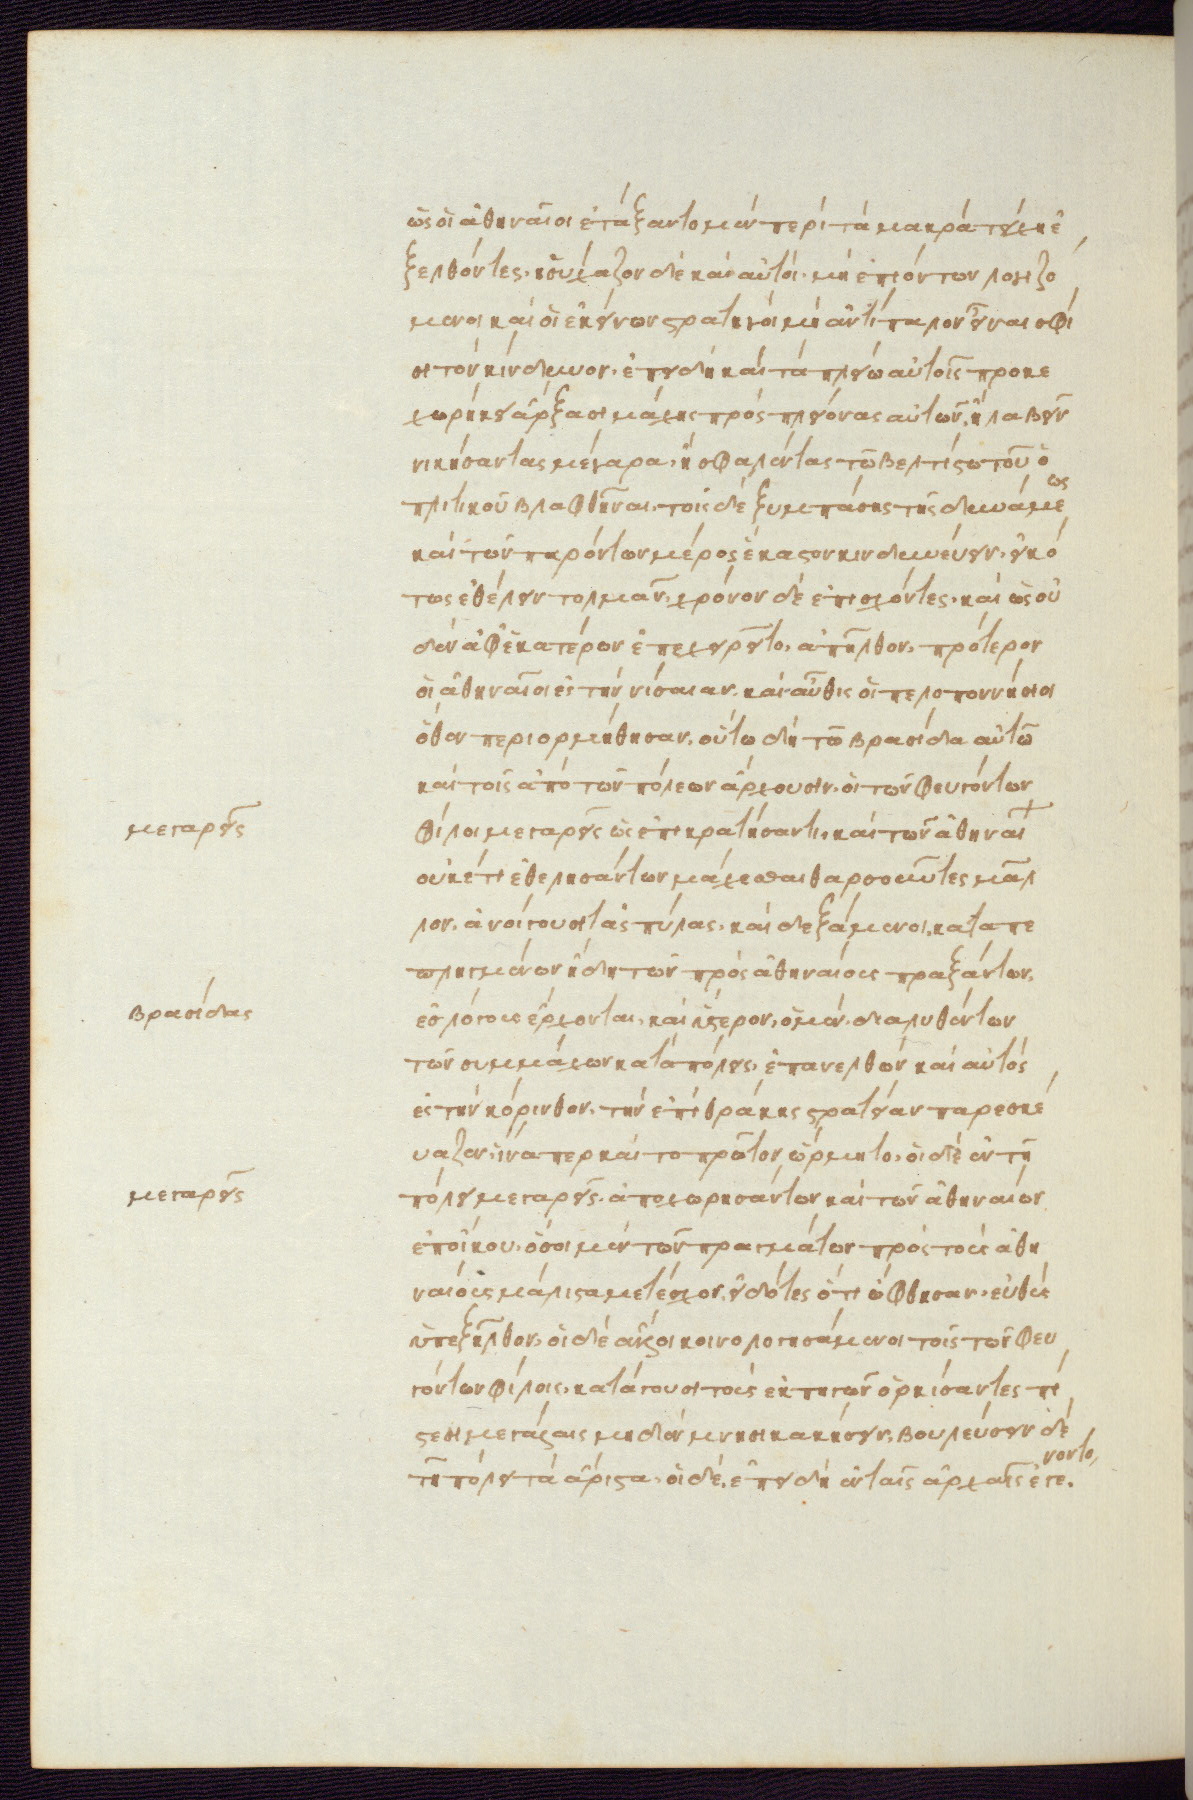 ὡς οἱ ἀθηναῖοι ἐτάξαντο μὲν περὶ τὰ μακρὰ τείχη ἐ
ξελθόντες. ἡσύχαζον δὲ καὶ αὐτοὶ. μὴ ἐπιόντων λογιζό
μενοι καὶ οἱ ἐκείνων στρατηγοὶ μὴ ἀντίπαλον εἶναι σφί
σι τὸν κίνδυνον. ἐπειδὴ καὶ τὰ πλείω αὐτοῖς προκε
χωρήκει ἄρξασι μάχης πρὸς πλείονας αὐτῶν, ἢ λαβεῖν
νικήσαντας μέγαρα, ἢ σφαλέντας τῶ βελτίστω τοῦ ὁ
πλιτικοῦ βλαφθῆναι. τοῖς δὲ ξυμπάσης τῆς δυνάμεως
καὶ τῶν παρόντων μέρος ἕκαστον κινδυνεύειν. εἰκό
τως ἐθέλειν τολμᾶν. χρόνον δὲ ἐπισχόντες. καὶ ὡς οὐ
δὲν ἀφ' ἑκατέρων ἐπεχειρεῖτο, ἀπῆλθον. πρότερον
οἱ ἀθηναῖοι ἐς τὴν νίσαιαν. καὶ αὖθις οἱ πελοποννήσιοι
ὅθεν περιορμήθησαν. οὕτω δὴ τῶ βρασίδα αὐτῶ
καὶ τοῖς ἀπὸ τῶν πόλεων ἄρχουσιν. οἱ τῶν φευγόντων
μεγαρεῖς
φίλοι μεγαρεῖς ὡς ἐπικρατήσαντι, καὶ τῶν ἀθηναί
οὐκέτι ἐθελησάντων μάχεσθαι θαρσοῦντες μᾶλ
λον. ἀνοίγουσι τὰς πύλας. καὶ δεξάμενοι. καταπε
πληγμένων ἤδη τῶν πρὸς ἀθηναίους πραξάντων.
βρασίδας
ἐς λόγους ἔρχονται. καὶ ὕστερον, ὁ μὲν. διαλυθέντων
τῶν συμμάχων κατὰ πόλεις. ἐπανελθὼν καὶ αὐτὸς
ἐς τὴν κόρινθον. τὴν ἐπὶ θράκης στρατείαν παρεσκεύ
υαζεν. ἵνα περ καὶ το πρῶτον ὥρμητο. οἱ δὲ ἐν τῆ
μεγαρεῖς
πόλει μεγαρεῖς. ἀποχωρησάντων καὶ τῶν ἀθηναίων
ἐποίκου. ὅσοι μὲν τῶν πραγμάτων πρὸς τοὺς ἀθη
ναίους μάλιστα μετέσχον. εἰδότες ὅτι ὤφθησαν. εὐθὺς
ὑπεξῆλθον. οἱ δὲ ἄλλοι κοινολογησάμενοι τοῖς τῶν φευ
γόντων φίλοις. κατάγουσι τοὺς ἐκ πηγῶν ὁρκίσαντες πί
στεσι μεγάλαις μηδὲν μνησικακήσειν. βουλεύσειν δὲ
τῆ πόλει τὰ ἄριστα. οἱ δὲ. ἐπειδὴ ἐν ταῖς ἀρχαῖς ἐγένοντο,